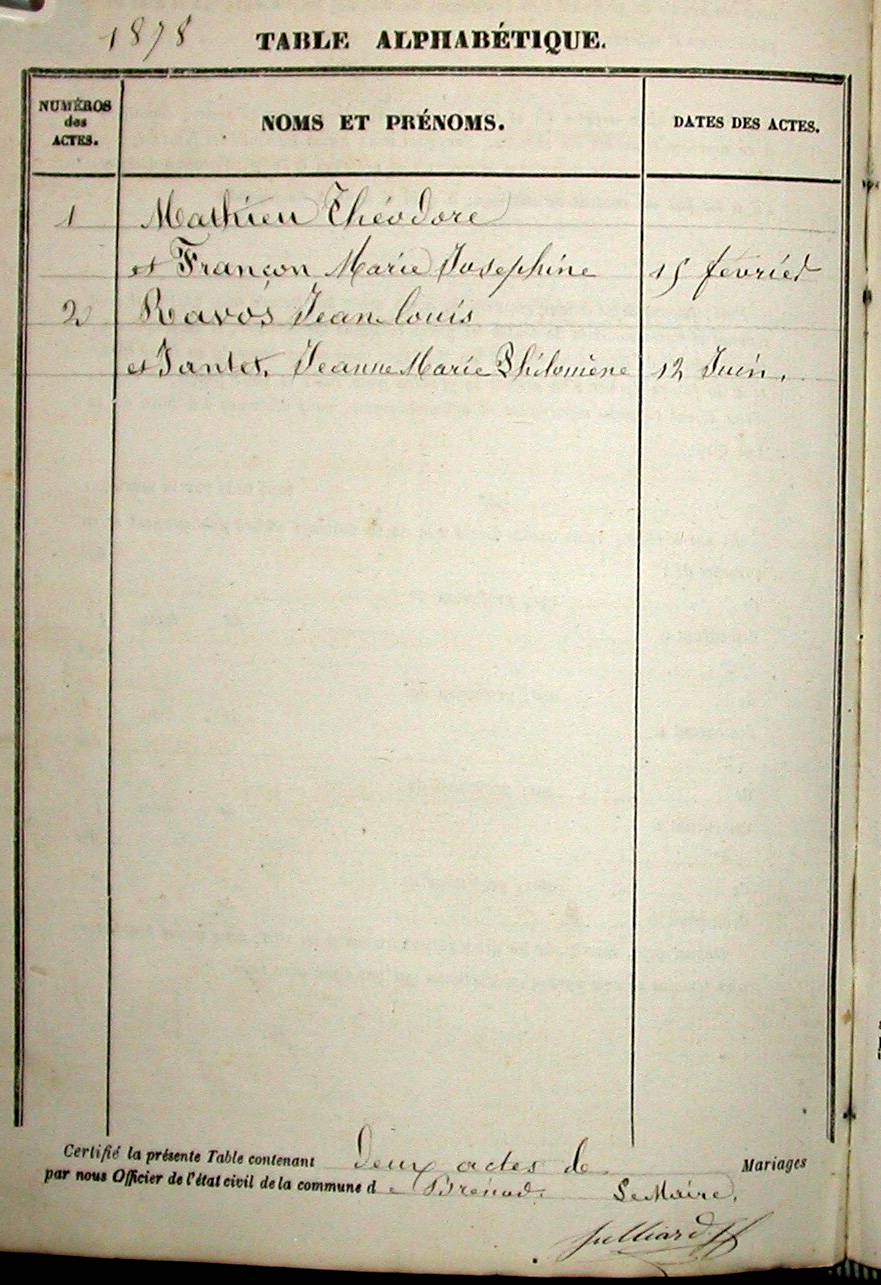 1878 TABLE ALPHABÉTIQUE.
NUMÉROS
des
ACTES.
NOMS ET PRÉNOMS.
DATES DES ACTES.
1 Mathieu Théodore
et Françon Marie Josephine 15 février
2 Ravos Jean Louis
et Jantet, Jeanne Marie Philomène 12 Juin.
Certifié la présente Table contenant Deux actes de Mariages
par nous Officier de l'état civil de la commune de Brénod. Le Maire,
Julliard